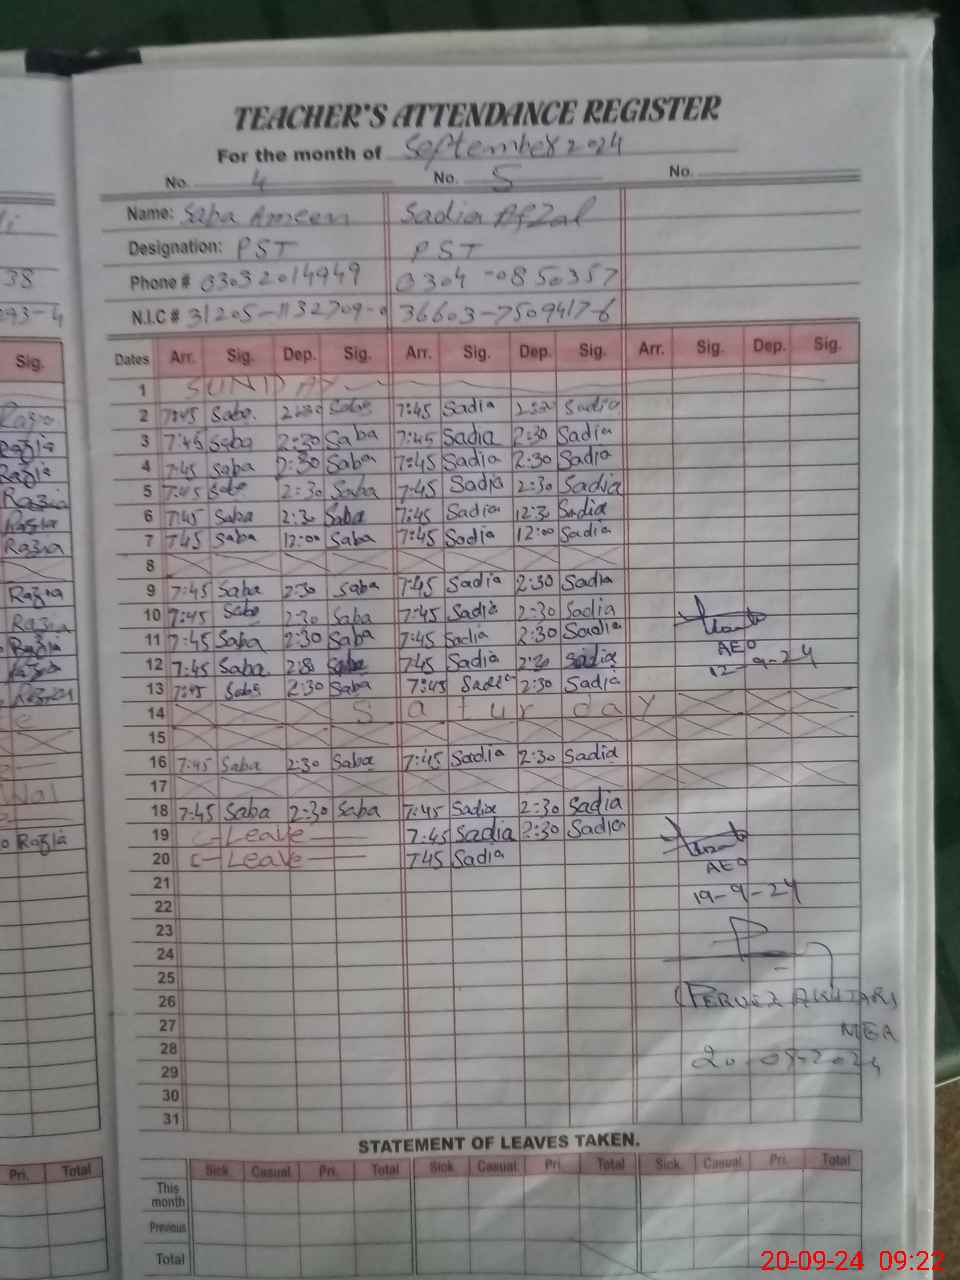 TEACHER'S ATTENDANCE REGISTER
For the month of September 2024
No. 4 No. 5 No.
Name: Saba Ameen Sadia Afzal
Designation: PST PST
38 Phone # 03032014949 0304-0850357
293-4 N.I.C # 31205-1132709-0 36603-7509417-6
Sig. Dates Arr. Sig. Dep. Sig. Arr. Sig. Dep. Sig. Arr. Sig. Dep. Sig.
1 SUNDAY
Razia 2 7:45 Saba 2:30 Saba 7:45 Sadia 2:30 Sadia
Razia 3 7:45 Saba 2:30 Saba 7:45 Sadia 2:30 Sadia
Razia 4 7:45 Saba 2:30 Saba 7:45 Sadia 2:30 Sadia
Razia 5 7:45 Saba 2:30 Saba 7:45 Sadia 2:30 Sadia
Razia 6 7:45 Saba 2:30 Saba 7:45 Sadia 12:30 Sadia
Razia 7 7:45 Saba 12:00 Saba 7:45 Sadia 12:00 Sadia
8
Razia 9 7:45 Saba 2:30 Saba 7:45 Sadia 2:30 Sadia
Razia 10 7:45 Saba 2:30 Saba 7:45 Sadia 2:30 Sadia
Razia 11 7:45 Saba 2:30 Saba 7:45 Sadia 2:30 Sadia AEO
Razia 12 7:45 Saba Saba 7:45 Sadia 2:30 Sadia 12-9-24
Razia 13 7:45 Saba 2:30 Saba 7:45 Sadia 2:30 Sadia
14 Saturday
15
16 7:45 Saba 2:30 Saba 7:45 Sadia 2:30 Sadia
17
18 7:45 Saba 2:30 Saba 7:45 Sadia 2:30 Sadia
Razia 19 C-Leave 7:45 Sadia 2:30 Sadia
20 C-Leave 7:45 Sadia AEO
21 19-9-24
22
23
24
25
26 (PERVEZ AKHTAR)
27 MEA
28 20-09-2024
29
30
31
STATEMENT OF LEAVES TAKEN.
Pri. Total Sick Casual Pri. Total Sick Casual Pri Total Sick Casual Pri. Total
This month
Previous
Total
20-09-24 09:22